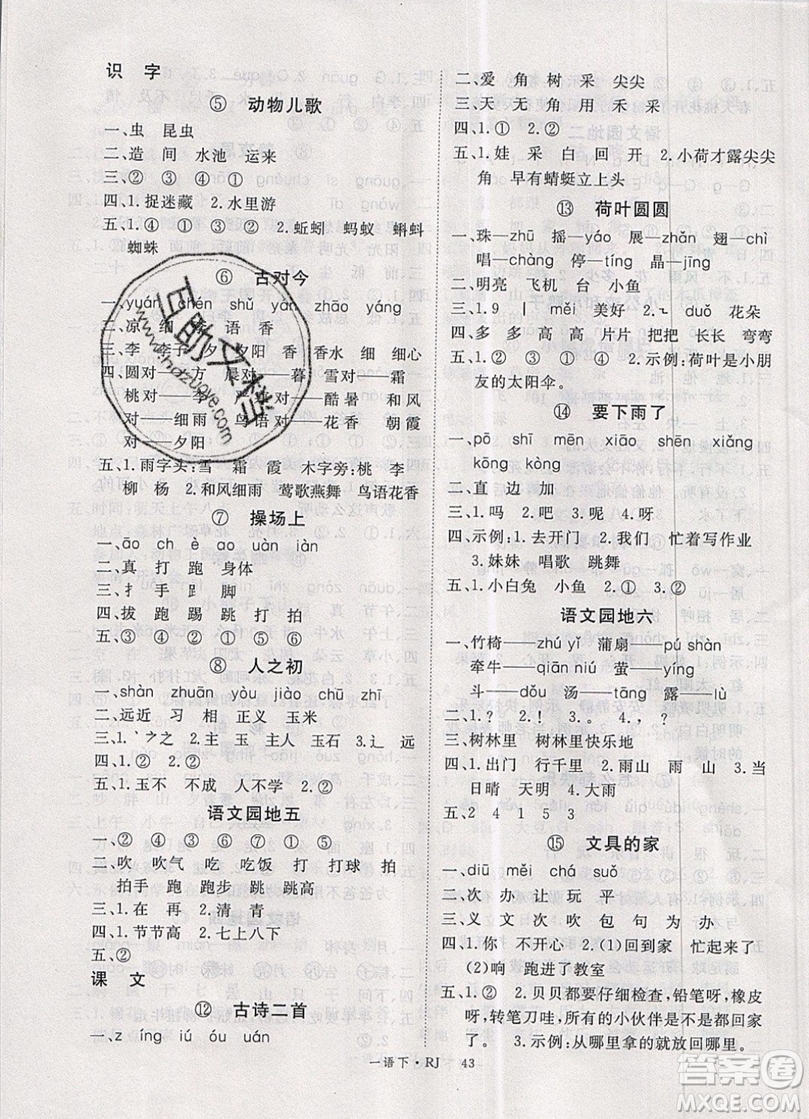 识 字
⑤ 动物儿歌
一、虫 昆虫
二、造 间 水池 运来
三、② ③ ① ④ ①
四、1. 捉迷藏 2.水里游
五、1.① ② 2.蚯蚓 蚂蚁 蝌蚪
蜘蛛
⑥ 古对今
一、yuán chén shǔ yán zhāo yáng
二、凉 细 语 香
三、李 子 夕阳 香 细细
四、圆对 —— 晨——暮 雪对——霜
桃对—— ——酷暑 和风
对——细雨 鸟语——花香 朝霞
对——夕阳
五、1.雨字头:雪 霜 霞 木字旁:桃 李
柳 杨 2.和风细雨 莺歌燕舞 鸟语花香
⑦ 操场上
一、āo ch è ào uàn iàn
二、真 打 跑 身体
三、扌 手 ⻊ 脚
四、拔 跑 踢 跳 打 拍
五、③ ④ ② ⑥ ① ⑤
⑧ 人之初
一、shàn zhuān yòu jiào chū zhī
二、远近 习 相 正义 玉米
三、1.丶 之 2.主 玉 主人 玉石 3.辶 远
四、1.① 2.②
五、1.玉 不 成人 人不学 2.②
语文园地五
一、② ③ ④ ⑥ ⑦ ① ⑤
二、吹 吹气 吃 吃饭 打 打球 拍
拍手 跑 跑步 跳 跳高
三、1.在 再 2.青 清
四、1.天下 2.七上八下
五、②
课 文
⑫ 古诗二首
一、z íng iú óu uán
二、爱 角 树 采 尖尖
三、天 无 角 用 禾 采
四、1.① 2.②
五、1.娃 采 白 回 开 2.小荷才露尖尖
角 早有蜻蜓立上头
⑬ 荷叶圆圆
一、珠—zhū 摇—yáo 展—zhǎn 翅—chì
唱—chàng 停—tíng 晶—jīng
二、明亮 飞机 台 小鱼
三、1. 9 丨 měi 美好 2. duǒ 花朵
四、多 多 高 高 片片 把把 长长 弯弯
五、1.② ④ ① ③ 2.示例:荷叶是小朋
友的太阳伞。
⑭ 要下雨了
一、pō shī mēn xiāo shēn xiǎng
kōng kòng
二、直 边 加
三、1.吧 2.吗 3.呢 4.呀
四、示例:1.去开门 2.我们 忙着写作业
3.妹妹 唱歌 跳舞
五、1.小白兔 小鱼 2.① 3.②
语文园地六
一、竹椅——zhú yǐ 蒲扇——pú shàn
牵牛——qiān niú 萤——yíng
斗——dǒu 汤——tāng 露——lù
二、1.? 2.! 3.。 4., ?
三、树林里 树林里快乐地
四、1.出门 行千里 2.雨山 雨 山 3.当
日晴 天明 4.大雨
五、2 4 1 5 3
⑮ 文具的家
一、diū měi chá suǒ
二、次 办 让 玩 平
三、义 文 次 吹 包 句 为 办
四、1.你 不开心 2.(1)回到家 忙起来了
(2)响 跑进了教室
五、1.② 2.贝贝都要仔细检查,铅笔呀,橡皮
呀,转笔刀哇,所有的小伙伴差不多
了。 3.示例:从哪里拿的就放回哪里。
一语下·RJ 43